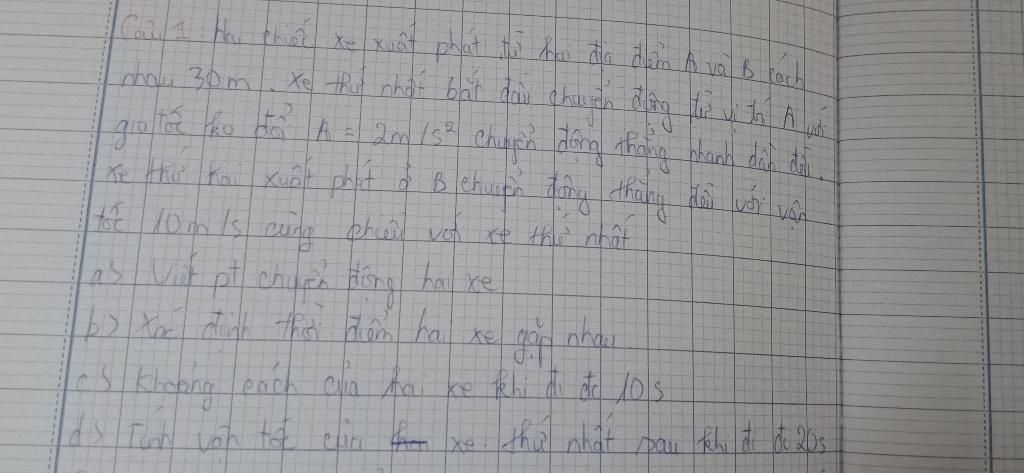 Câu 1: Hai chiếc xe xuất phát từ hai địa điểm A và B cách
nhau 30m. Xe thứ nhất bắt đầu chuyển động từ vị trí A với
gia tốc ko đổi A = 2m/s² chuyển động thẳng nhanh dần đều.
Xe thứ hai xuất phát ở B chuyển động thẳng đều với vận
tốc 10m/s cùng chiều với xe thứ nhất
a) Viết pt chuyển động hai xe
b) Xác định thời điểm hai xe gặp nhau
c) Khoảng cách của hai xe khi đi đc 10s
d) Tính vận tốc của xe thứ nhất sau khi đi đc 20s